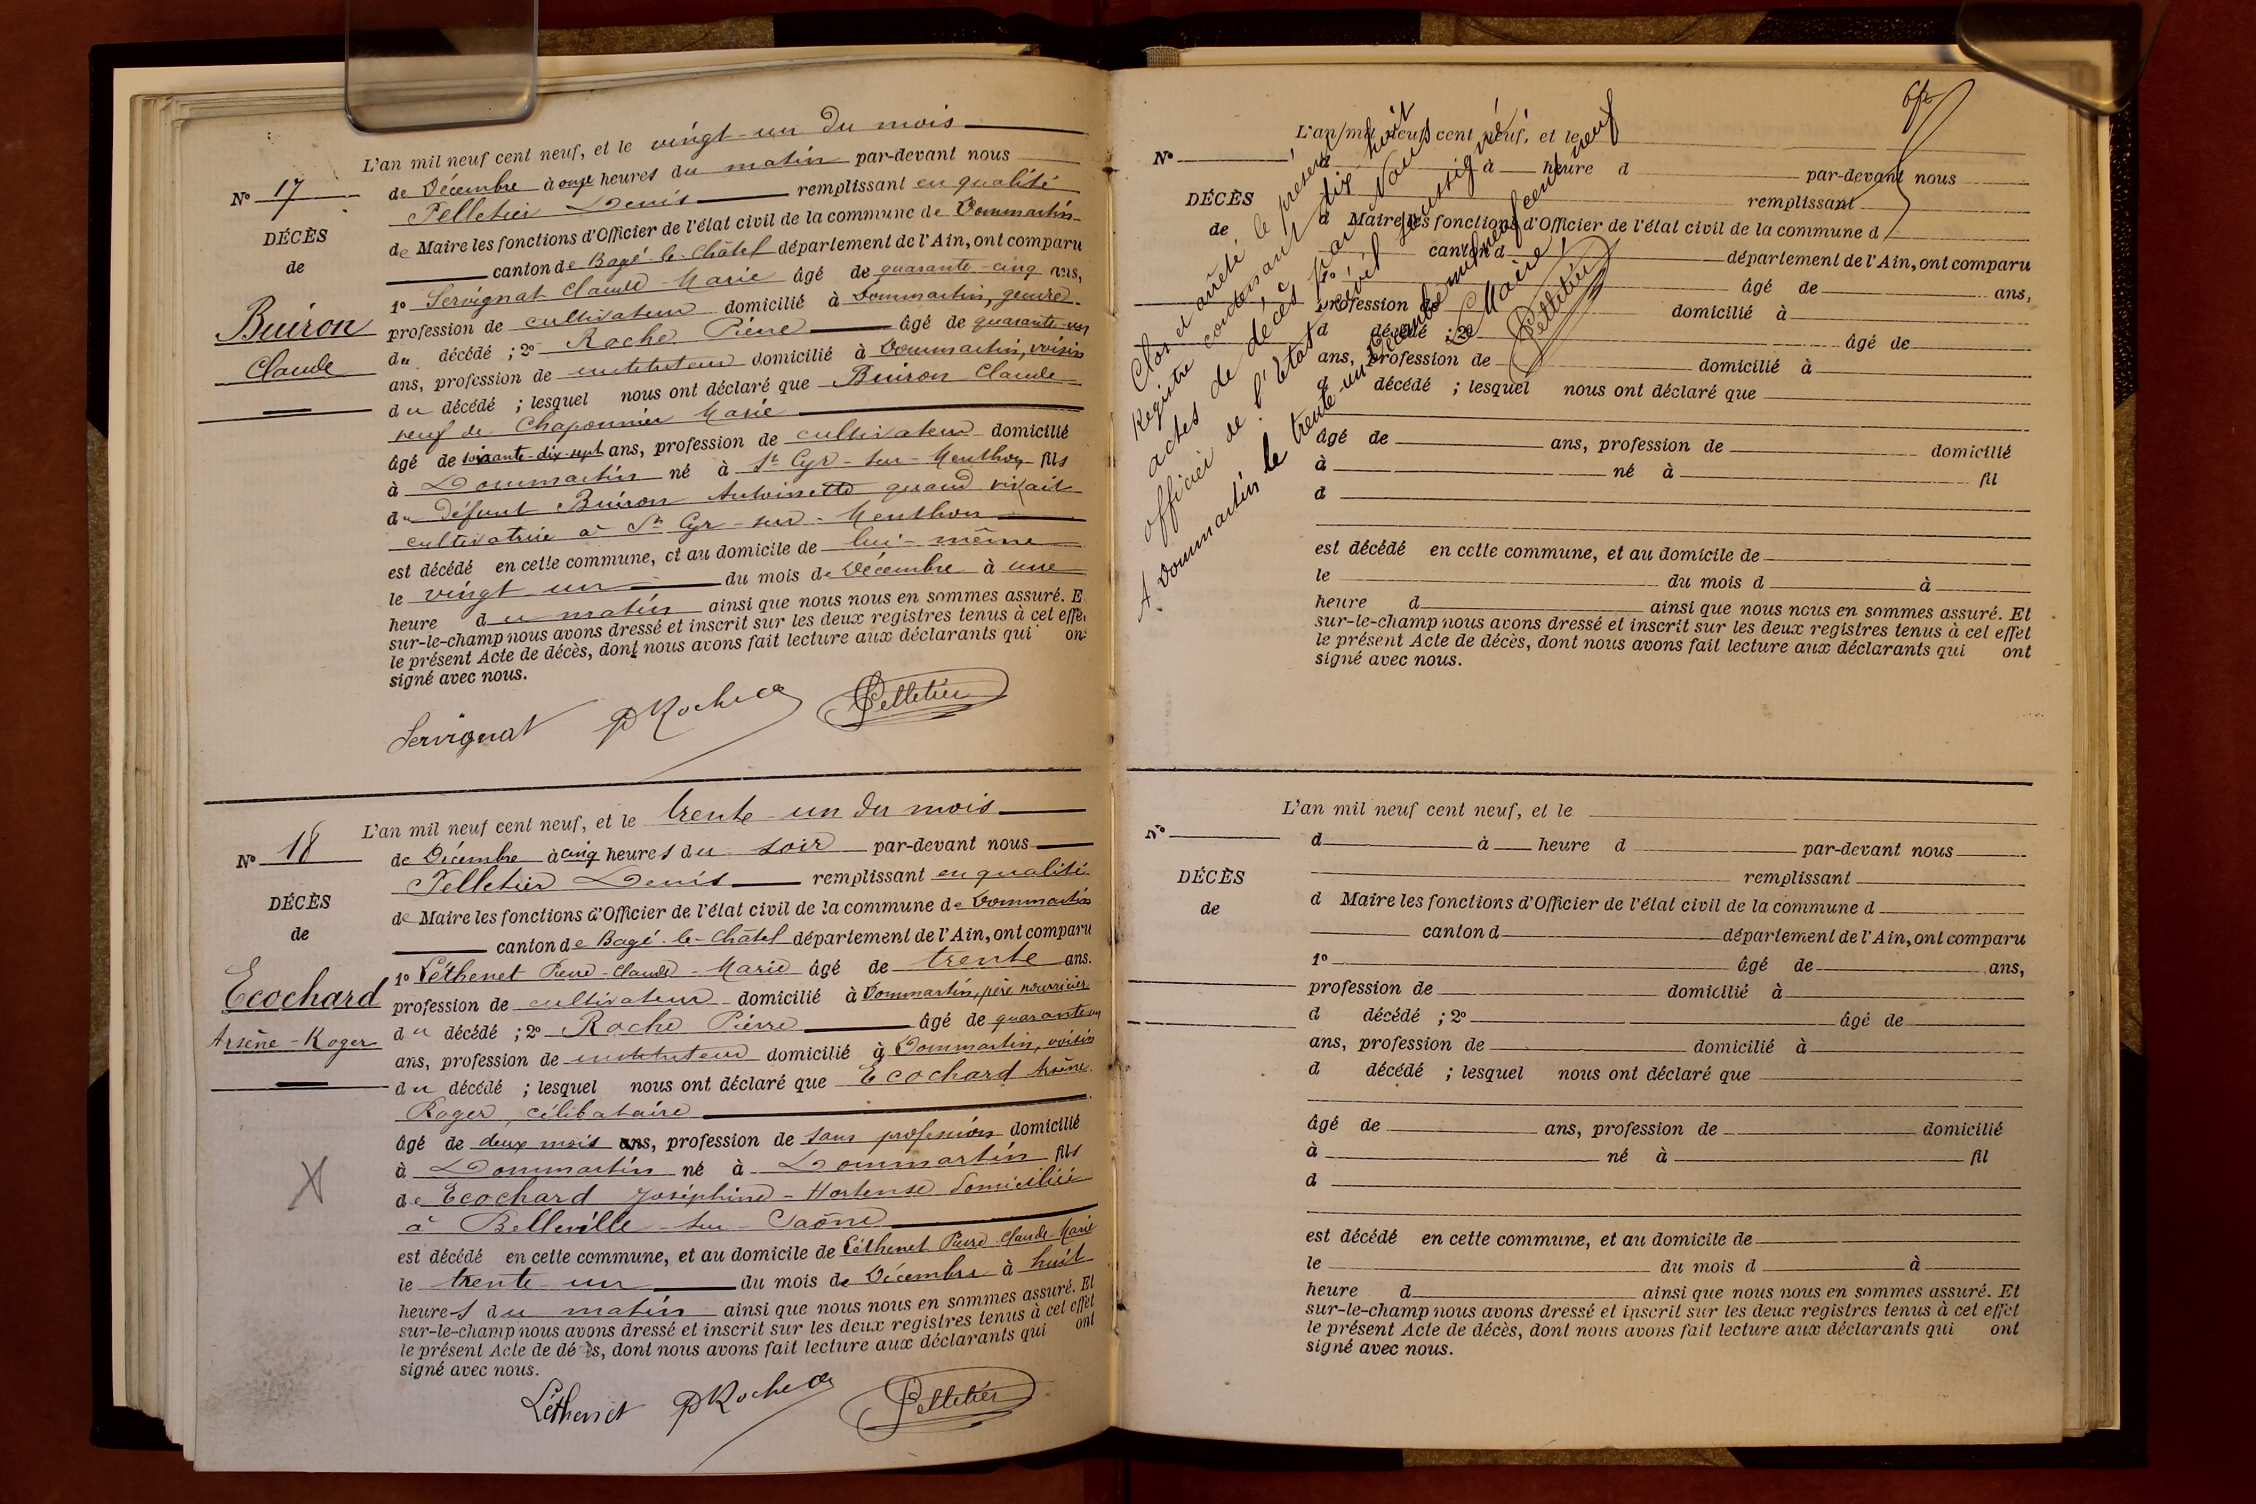 L'an mil neuf cent neuf, et le vingt-un du mois
N° 17
de Décembre à onze heures du matin par-devant nous
Pelletier Denis remplissant en qualité
DÉCÈS
de Maire les fonctions d'Officier de l'état civil de la commune de Dommartin
de
canton de Bagé-le-Châtel département de l'Ain, ont comparu
1° Servignat Claude-Marie âgé de quarante-cinq ans,
Buiron
profession de cultivateur domicilié à Dommartin, gendre
Claude
du décédé ; 2° Roche Pierre âgé de quarante-un
ans, profession de instituteur domicilié à Dommartin, voisin
du décédé ; lesquel nous ont déclaré que Buiron Claude
veuf de Chaponnier Marie
âgé de soixante-dix-sept ans, profession de cultivateur domicilié
à Dommartin né à St Cyr-sur-Menthon fils
de défunt Buiron Antoinette quand vivait
cultivatrice à St Cyr-sur-Menthon
est décédé en cette commune, et au domicile de lui-même
le vingt-un du mois de Décembre à une
heure du matin ainsi que nous nous en sommes assuré. E
sur-le-champ nous avons dressé et inscrit sur les deux registres tenus à cet effe
le présent Acte de décès, dont nous avons fait lecture aux déclarants qui on
signé avec nous.
Servignat P Roche Pelletier
L'an mil neuf cent neuf, et le trente-un du mois
N° 18
de Décembre à cinq heures du soir par-devant nous
Pelletier Denis remplissant en qualité
DÉCÈS
de Maire les fonctions d'Officier de l'état civil de la commune de Dommartin
de
canton de Bagé-le-Châtel département de l'Ain, ont comparu
1° Léthenet Pierre-Claude-Marie âgé de trente ans.
Ecochard
profession de cultivateur domicilié à Dommartin, père nourricier
Arsène-Roger
du décédé ; 2° Roche Pierre âgé de quarante-un
ans, profession de instituteur domicilié à Dommartin, voisin
du décédé ; lesquel nous ont déclaré que Ecochard Arsène
Roger, célibataire
âgé de deux mois ans, profession de sans profession domicilié
à Dommartin né à Dommartin fils
de Ecochard Joséphine-Hortense domiciliée
à Belleville-sur-Saône
est décédé en cette commune, et au domicile de Léthenet Pierre-Claude-Marie
le trente-un du mois de Décembre à huit
heures du matin ainsi que nous nous en sommes assuré. Et
sur-le-champ nous avons dressé et inscrit sur les deux registres tenus à cet effet
le présent Acte de décès, dont nous avons fait lecture aux déclarants qui ont
signé avec nous.
Léthenet P Roche Pelletier
Clos et arrêté le présent
Registre contenant dix-huit
actes de décès par Nous
officier de l'état civil soussigné
A Dommartin le trente-un Décembre mil neuf cent neuf
Le Maire,
Pelletier
L'an mil neuf cent neuf, et le
N°
à heure d par-devant nous
remplissant
DÉCÈS
d Maire les fonctions d'Officier de l'état civil de la commune d
de
canton d département de l'Ain, ont comparu
1° âgé de ans,
profession de domicilié à
d décédé ; 2° âgé de
ans, profession de domicilié à
d décédé ; lesquel nous ont déclaré que
âgé de ans, profession de domicilié
à né à fil
d
est décédé en cette commune, et au domicile de
le du mois d à
heure d ainsi que nous nous en sommes assuré. Et
sur-le-champ nous avons dressé et inscrit sur les deux registres tenus à cet effet
le présent Acte de décès, dont nous avons fait lecture aux déclarants qui ont
signé avec nous.
L'an mil neuf cent neuf, et le
N°
d à heure d par-devant nous
remplissant
DÉCÈS
d Maire les fonctions d'Officier de l'état civil de la commune d
de
canton d département de l'Ain, ont comparu
1° âgé de ans,
profession de domicilié à
d décédé ; 2° âgé de
ans, profession de domicilié à
d décédé ; lesquel nous ont déclaré que
âgé de ans, profession de domicilié
à né à fil
d
est décédé en cette commune, et au domicile de
le du mois d à
heure d ainsi que nous nous en sommes assuré. Et
sur-le-champ nous avons dressé et inscrit sur les deux registres tenus à cet effet
le présent Acte de décès, dont nous avons fait lecture aux déclarants qui ont
signé avec nous.